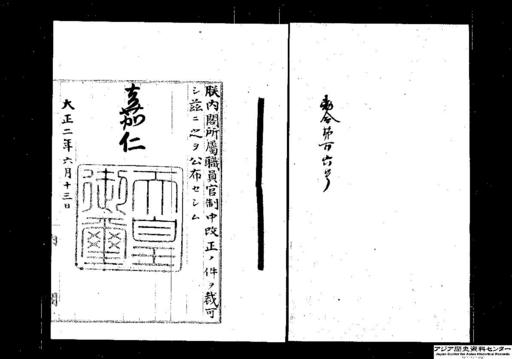 勅令第百六号
朕内閣所属職員官制中改正ノ件ヲ裁可
シ茲ニ之ヲ公布セシム
嘉仁
天皇御璽
大正二年六月十三日
内閣
アジア歴史資料センター
Japan Center for Asian Historical Records